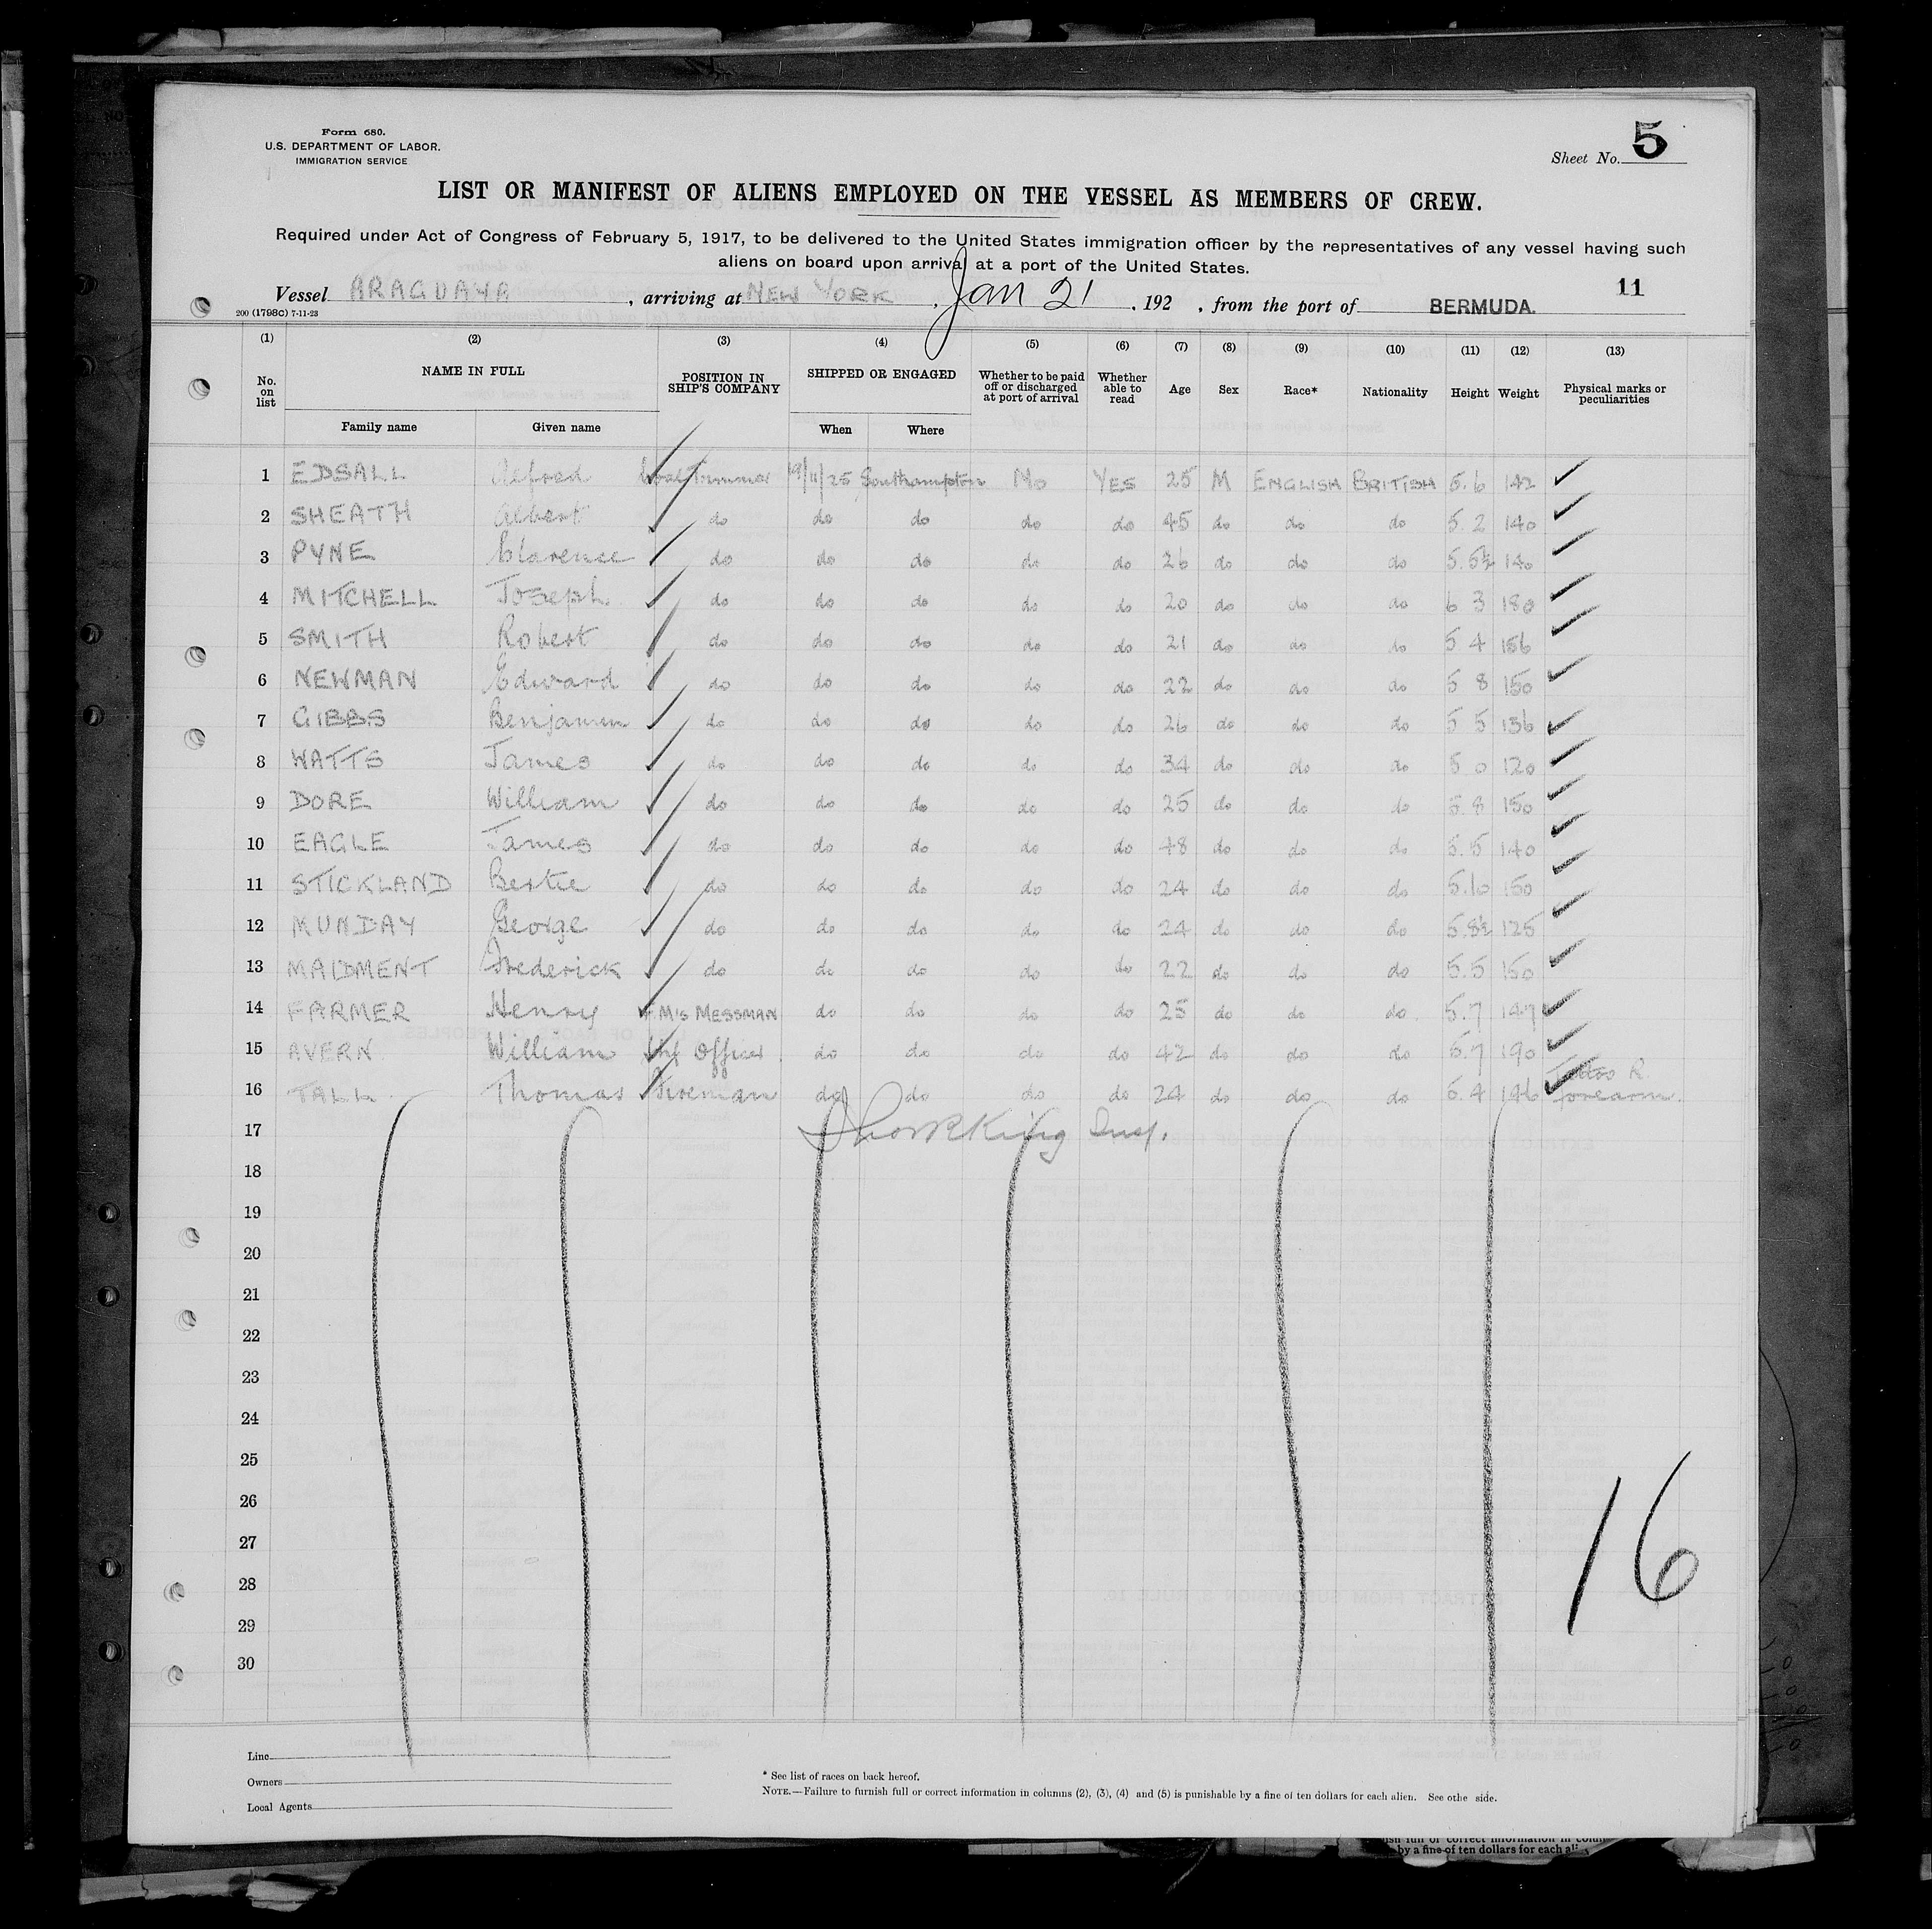 Form 680.
U.S. DEPARTMENT OF LABOR.
IMMIGRATION SERVICE
Sheet No. 5
LIST OR MANIFEST OF ALIENS EMPLOYED ON THE VESSEL AS MEMBERS OF CREW.
Required under Act of Congress of February 5, 1917, to be delivered to the United States immigration officer by the representatives of any vessel having such
aliens on board upon arrival at a port of the United States.
11
Vessel ARAGUAYA, arriving at NEW YORK, Jan 21, 192 , from the port of BERMUDA.
200 (1798C) 7-11-23
(1) (2) (3) (4) (5) (6) (7) (8) (9) (10) (11) (12) (13)
No. on list NAME IN FULL POSITION IN SHIP'S COMPANY SHIPPED OR ENGAGED Whether to be paid off or discharged at port of arrival Whether able to read Age Sex Race* Nationality Height Weight Physical marks or peculiarities
Family name Given name When Where
1 EDSALL Alfred Coal Trimmer 19/11/25 Southampton No YES 25 M ENGLISH BRITISH 5.6 142
2 SHEATH Albert do do do do do 45 do do do 5 2 140
3 PYNE Clarence do do do do do 26 do do do 5.5½ 140
4 MITCHELL Joseph do do do do do 20 do do do 6 3 180
5 SMITH Robert do do do do do 21 do do do 5 4 156
6 NEWMAN Edward do do do do do 22 do do do 5 8 150
7 GIBBS Benjamin do do do do do 26 do do do 5 5 136
8 WATTS James do do do do do 34 do do do 5 0 120
9 DORE William do do do do do 25 do do do 5.8 150
10 EAGLE James do do do do do 48 do do do 5.5 140
11 STICKLAND Bertie do do do do do 24 do do do 5.10 150
12 MUNDAY George do do do do do 24 do do do 5.8½ 125
13 MAIDMENT Frederick do do do do do 22 do do do 5.5 150
14 FARMER Henry F.M's MESSMAN do do do do 25 do do do 5.7 147
15 AVERN William Officer do do do do 42 do do do 5.7 190
16 TALL Thomas Fireman do do do do 24 do do do 5.4 146 Tattoo R. forearm.
17 King Insp.
18
19
20
21
22
23
24
25
26
27
28
29
30
16
Line
Owners
Local Agents
* See list of races on back hereof.
NOTE.—Failure to furnish full or correct information in columns (2), (3), (4) and (5) is punishable by a fine of ten dollars for each alien. See othe side.
by a fine of ten dollars for each ali